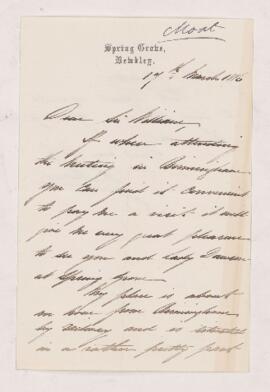 Moat
Spring Grove,
Bewdley.
17th March 1886
Dear Sir William,
If when attending
the meeting in Birmingham
you can find it convenient
to pay me a visit it will
give me very great pleasure
to see you and Lady Dawson
at Spring Grove
My place is about
an hour from Birmingham
by railway and is situated
in a rather pretty part